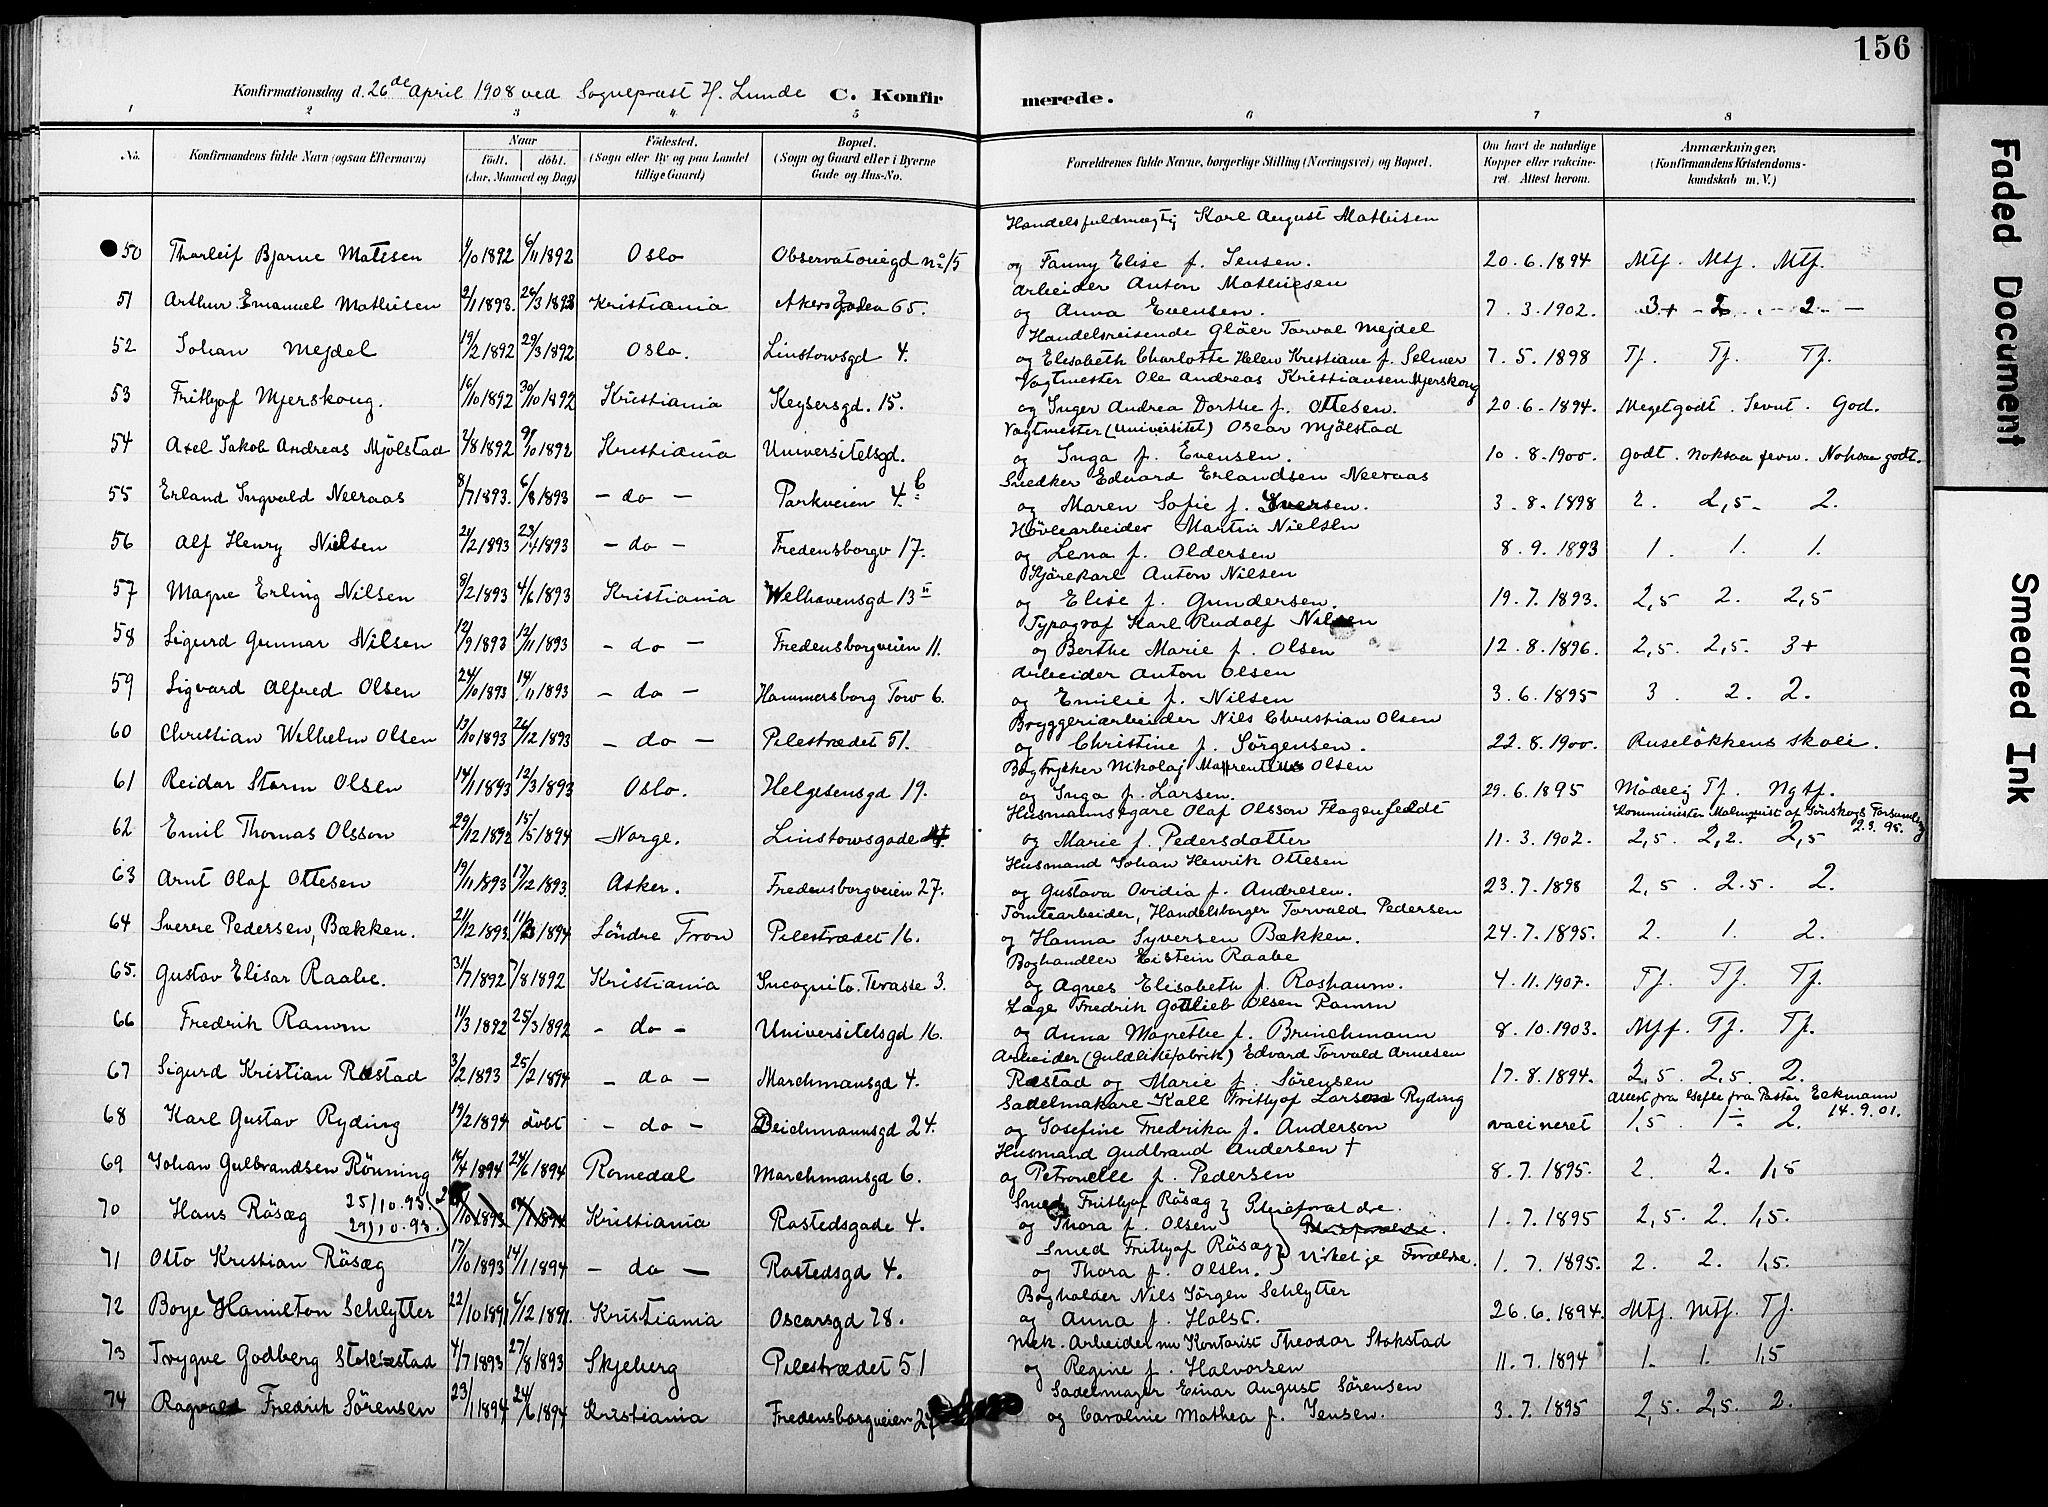 156
Konfirmationsdag d. 26de April 1908 ved Sogneprest H. Lunde C. Konfirmerede.
1 2 3 4 5 6 7 8
No. Konfirmandens fulde Navn (ogsaa Efternavn) Naar Født. døbt. (Aar, Maaned og Dag) Fødested. (Sogn eller By og paa Landet tillige Gaard) Bopæl. (Sogn og Gaard eller i Byerne Gade og Hus-No. Forældrenes fulde Navne, borgerlige Stilling (Næringsvei) og Bopæl. Om havt de naturlige Kopper eller vaccineret. Attest herom. Anmærkninger, (Konfirmandens Kristendomskundskab m. V.)
Handelsfuldmægtig Karl August Mathisen
50 Thorleif Bjarne Matisen 1/10 1892 6/11 1892 Oslo Observatoriegd no 15 og Fanny Elise f. Jensen. 20.6.1894 Mtf. Mtf. Mtf.
Arbeider Anton Mathiesen
51 Arthur Emanuel Mathisen 2/1 1893. 26/3 1893 Kristiania Akersgaden 65. og Anna Evensen. 7.3.1902. 3+ - 2 - 2 -
Handelsreisende Gläer Torval Mejdel
52 Johan Mejdel 19/2 1892 29/3 1892 Oslo. Linstowsgd 4. og Elisabeth Charlotte Helen Kristiane f. Selmer 7.5.1898 Tf. Tf. Tf.
Vagtmester Ole Andreas Kristiansen Mjerskoug
53 Frithjof Mjerskoug. 16/10 1892 30/10 1892 Kristiania Keysersgd. 15. og Inger Andrea Dorthe f. Ottesen. 20.6.1894. Megetgodt. Jevnt. God.
Vagtmester (Universitet) Oscar Mjølstad
54 Axel Jakob Andreas Mjølstad 7/8 1892 9/10 1892 Kristiania Universitetsgd. og Inga f. Evensen. 10.8.1900. Godt. Noksaa jevn. Noksaa godt.
Snedker Edvard Erlandsen Neeraas
55 Erland Ingvald Neeraas 8/7 1893. 6/8 1893 - do - Parkveien 4 b og Maren Sofie f. Iversen. 3.8.1898 2. 2,5 - 2.
Høvlearbeider Martin Nielsen
56 Alf Henry Nielsen 24/2 1893 23/4 1893 - do - Fredensborgv 17. og Lena f. Oldersen 8.9.1893 1. 1. 1.
Kjørekarl Anton Nilsen
57 Magne Erling Nilsen 8/2 1893 4/6 1893 Kristiania Welhavensgd 13 II og Elise f. Gundersen. 19.7.1893. 2,5 2. 2,5
Typograf Karl Rudolf Nilsen
58 Sigurd Gunnar Nilsen 12/9 1893 12/11 1893 - do - Fredensborgveien 11. og Berthe Marie f. Olsen 12.8.1896. 2,5. 2,5. 3+
Arbeider Anton Olsen
59 Sigvard Alfred Olsen 24/10 1893. 19/11 1893 - do - Hammersborg Torv 6. og Emilie f. Nilsen 3.6.1895 3. 2. 2.
Bryggeriarbeider Nils Christian Olsen
60 Christian Wilhelm Olsen 13/10 1893 26/12 1893 - do - Pilestrædet 51. og Christine f. Jørgensen. 22.8.1900. Ruseløkkens skole.
Bogtrykker Nikolaj Olsen
61 Reidar Storm Olsen 14/1 1893 12/3 1893 Oslo. Helgesensgd 19. og Inga f. Larsen. 29.6.1895 Mådelig Tf. Ngtf.
Husmannsägare Olaf Olsson Flagenfeldt Komminister Malmquist af Tørskogs Forsamling 2.3.98.
62 Emil Thomas Olsson 29/12 1892 15/5 1894 Norge. Linstowsgade og Marie f. Pedersdatter 11.3.1902. 2,5. 2,2. 2,5
Husmand Johan Henrik Ottesen
63 Arnt Olaf Ottesen 19/11 1893 17/12 1893. Asker. Fredensborgveien 27. og Gustava Ovidia f. Andresen. 23.7.1898 2,5. 2.5. 2.
Tomtearbeider, Handelsborger Torvald Pedersen
64 Sverre Pedersen, Bækken. 21/12 1893. 11/3 1894 Søndre Fron Pilestrædet 16. og Hanna Syversen Bækken. 24.7.1895. 2. 1. 2.
Boghandler Eistein Raabe
65. Gustav Elisar Raabe. 31/7 1892 7/8 1892 Kristiania Incognito Terasse 3. og Agnes Elisabeth f. Roshaum. 4.11.1907. Tf. Tf. Tf.
Læge Fredrik Gottlieb Olsen Ramm
66 Fredrik Ramm 11/3 1892 25/3 1892 - do - Universitetsgd 16. og Anna Magrethe f. Brinchmann 8.10.1903. Mtf. Tf. Tf.
Arbeider (Guldlistefabrik) Edvard Torvald Arnesen
67 Sigurd Kristian Røstad 3/2 1893 25/2 1894 - do - Marchmansgd 4. Røstad og Marie f. Sørensen 17.8.1894. 2,5. 2,5. 2.
Sadelmakare Kall Frithjof Larson Ryding Attest fra Gefle fra Pastor Eckmann 14.9.01.
68 Karl Gustav Ryding 19/2 1894 døbt - do - Deichmannsgd 24. og Josefine Fredrika f. Anderson vacineret 1,5. 1÷ 2.
Husmand Gudbrand Andersen †
69 Johan Gulbrandsen Rønning 16/4 1894 24/6 1894 Romedal Marchmansgd 6. og Petronelle f. Pedersen 8.7.1895. 2. 2. 1,5
Smed Frithjof Røsæg } Pleieforældre.
70 Hans Røsæg 25/10.93. 29/10.93. Kristiania Rostedsgade 4. og Thora f. Olsen 1.7.1895 2,5. 2. 1,5.
Smed Frithjof Røsæg } virkelige Forældre.
71 Otto Kristian Røsæg 17/10 1893 14/1 1894 - do - Rostedsgd 4. og Thora f. Olsen. 1.7.1895. 2. 2. 1,5.
Bogholder Nils Jørgen Schlytter
72 Boye Hamilton Schlytter 22/10 1891 6/12 1891. Kristiania Oscarsgd 78. og Anna f. Holst. 26.6.1894. Mtf. Mtf. Tf.
Mek. Arbeider nu Kontorist Theodor Stokstad
73 Trygve Godberg Stokstad 4/7 1893 27/8 1893 Skjeberg Pilestrædet 51 og Regine f. Halvorsen 11.7.1894 1. 1. 1,5
Sadelmager Einar August Sørensen
74 Ragvald Fredrik Sørensen 23/1 1894 24/6 1894 Kristiania Fredensborgveien 24 og Caroline Mathea f. Jensen. 3.7.1895 2,5. 2,5. 2.
Faded Document
Smeared Ink